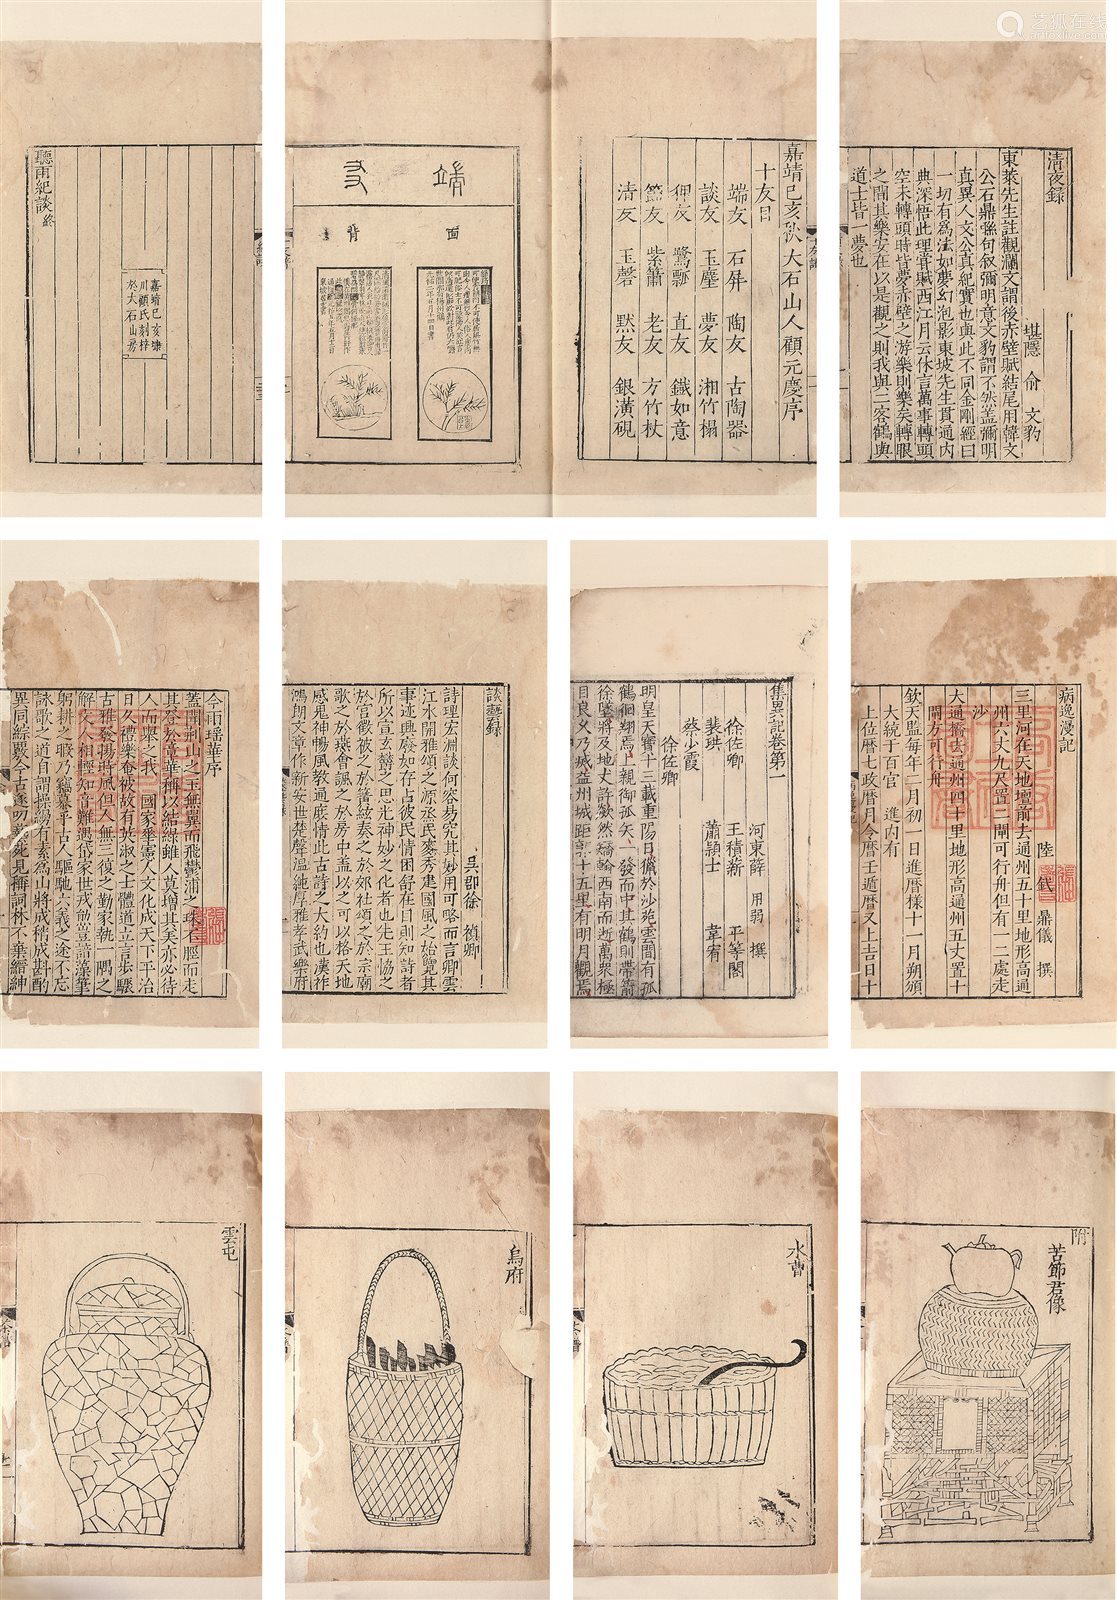 艺狐在线
artfoxlive.com
清夜錄
堪隱 俞 文豹
東萊先生註觀瀾文謂後赤壁賦結尾用韓文
公石鼎聯句叙彌明意文豹謂不然葢彌明
真異人文公真紀實也與此不同金剛經曰
一切有為法如夢幻泡影東坡先生貫通內
典深悟此理嘗賦西江月云休言萬事轉頭
空未轉頭時皆夢赤壁之游樂則樂矣轉眼
之間其樂安在以是觀之則我與二客鶴與
道士皆一夢也
嘉靖己亥秋大石山人顧元慶序
十友目
端友 石屏 陶友 古陶器
談友 玉麈 夢友 湘竹榻
狎友 鷺瓢 直友 鐵如意
節友 紫簫 老友 方竹杖
清友 玉磬 默友 銀潢硯
端
友
面
背
聽雨紀談 終
嘉靖己亥
川顧氏刻梓
於大石山房
病逸漫記
陸 釴 鼎儀 撰
三里河在天地壇前去通州五十里地形高通
州六丈九尺置二閘可行舟但有一二處走
沙
大通橋去通州四十里地形高通州五丈置十
閘方可行舟
欽天監每年二月初一日進曆樣十一月朔頒
大統于百官 進內有
上位曆七政曆月令曆壬遁曆又上吉日十
集異記卷第一
河東薛 用弱 撰
徐佐卿 王積薪 平等閣
裴珙 蕭頴士 韋宥
蔡少霞
徐佐卿
明皇天寶十三載重陽日獵於沙苑雲間有孤
鶴徊翔焉上親御孤矢一發而中其鶴則帶箭
徐墜將及地丈許欻然矯翰西南而逝萬衆極
目良乆乃滅益州城距郭十五里有明月觀焉
談藝錄
吳郡徐 禎卿
詩理宏淵談何容易究其妙用可略而言卿雲
江水開雅頌之源烝民麥秀建國風之始覽其
事迹興廢如存占彼民情困舒在目則知詩者
所以宣玄鬱之思光神妙之化者也先王協之
於宮徵被之於簧絃奏之於郊社頌之於宗廟
歌之於燕會諷之於房中盖以之可以格天地
感鬼神暢風教通庶情此古詩之大約也漢祚
鴻朗文章作新安世楚聲温純厚雅孝武樂府
今雨瑤華序
蓋聞荊山之玉無翼而飛鬱浦之珠不脛而走
其登於章華稱以結綠雖人莫增其美亦必待
人而舉之我 國家垂憲人文化成天下平治
日久禮樂奮被故有英淑之士體道立言步驟
古雅發揚時風但人無三復之勤家執一隅之
解文人相輕知音難遇岱家世戎勛豈諳藻筆
躬耕之暇乃竊慕乎古人驅馳六義之途不忘
詠歌之道自謂操觴有素為山將成稍放斟酌
異同綜覈今古遂叨
附
苦節君像
水曹
烏府
雲屯